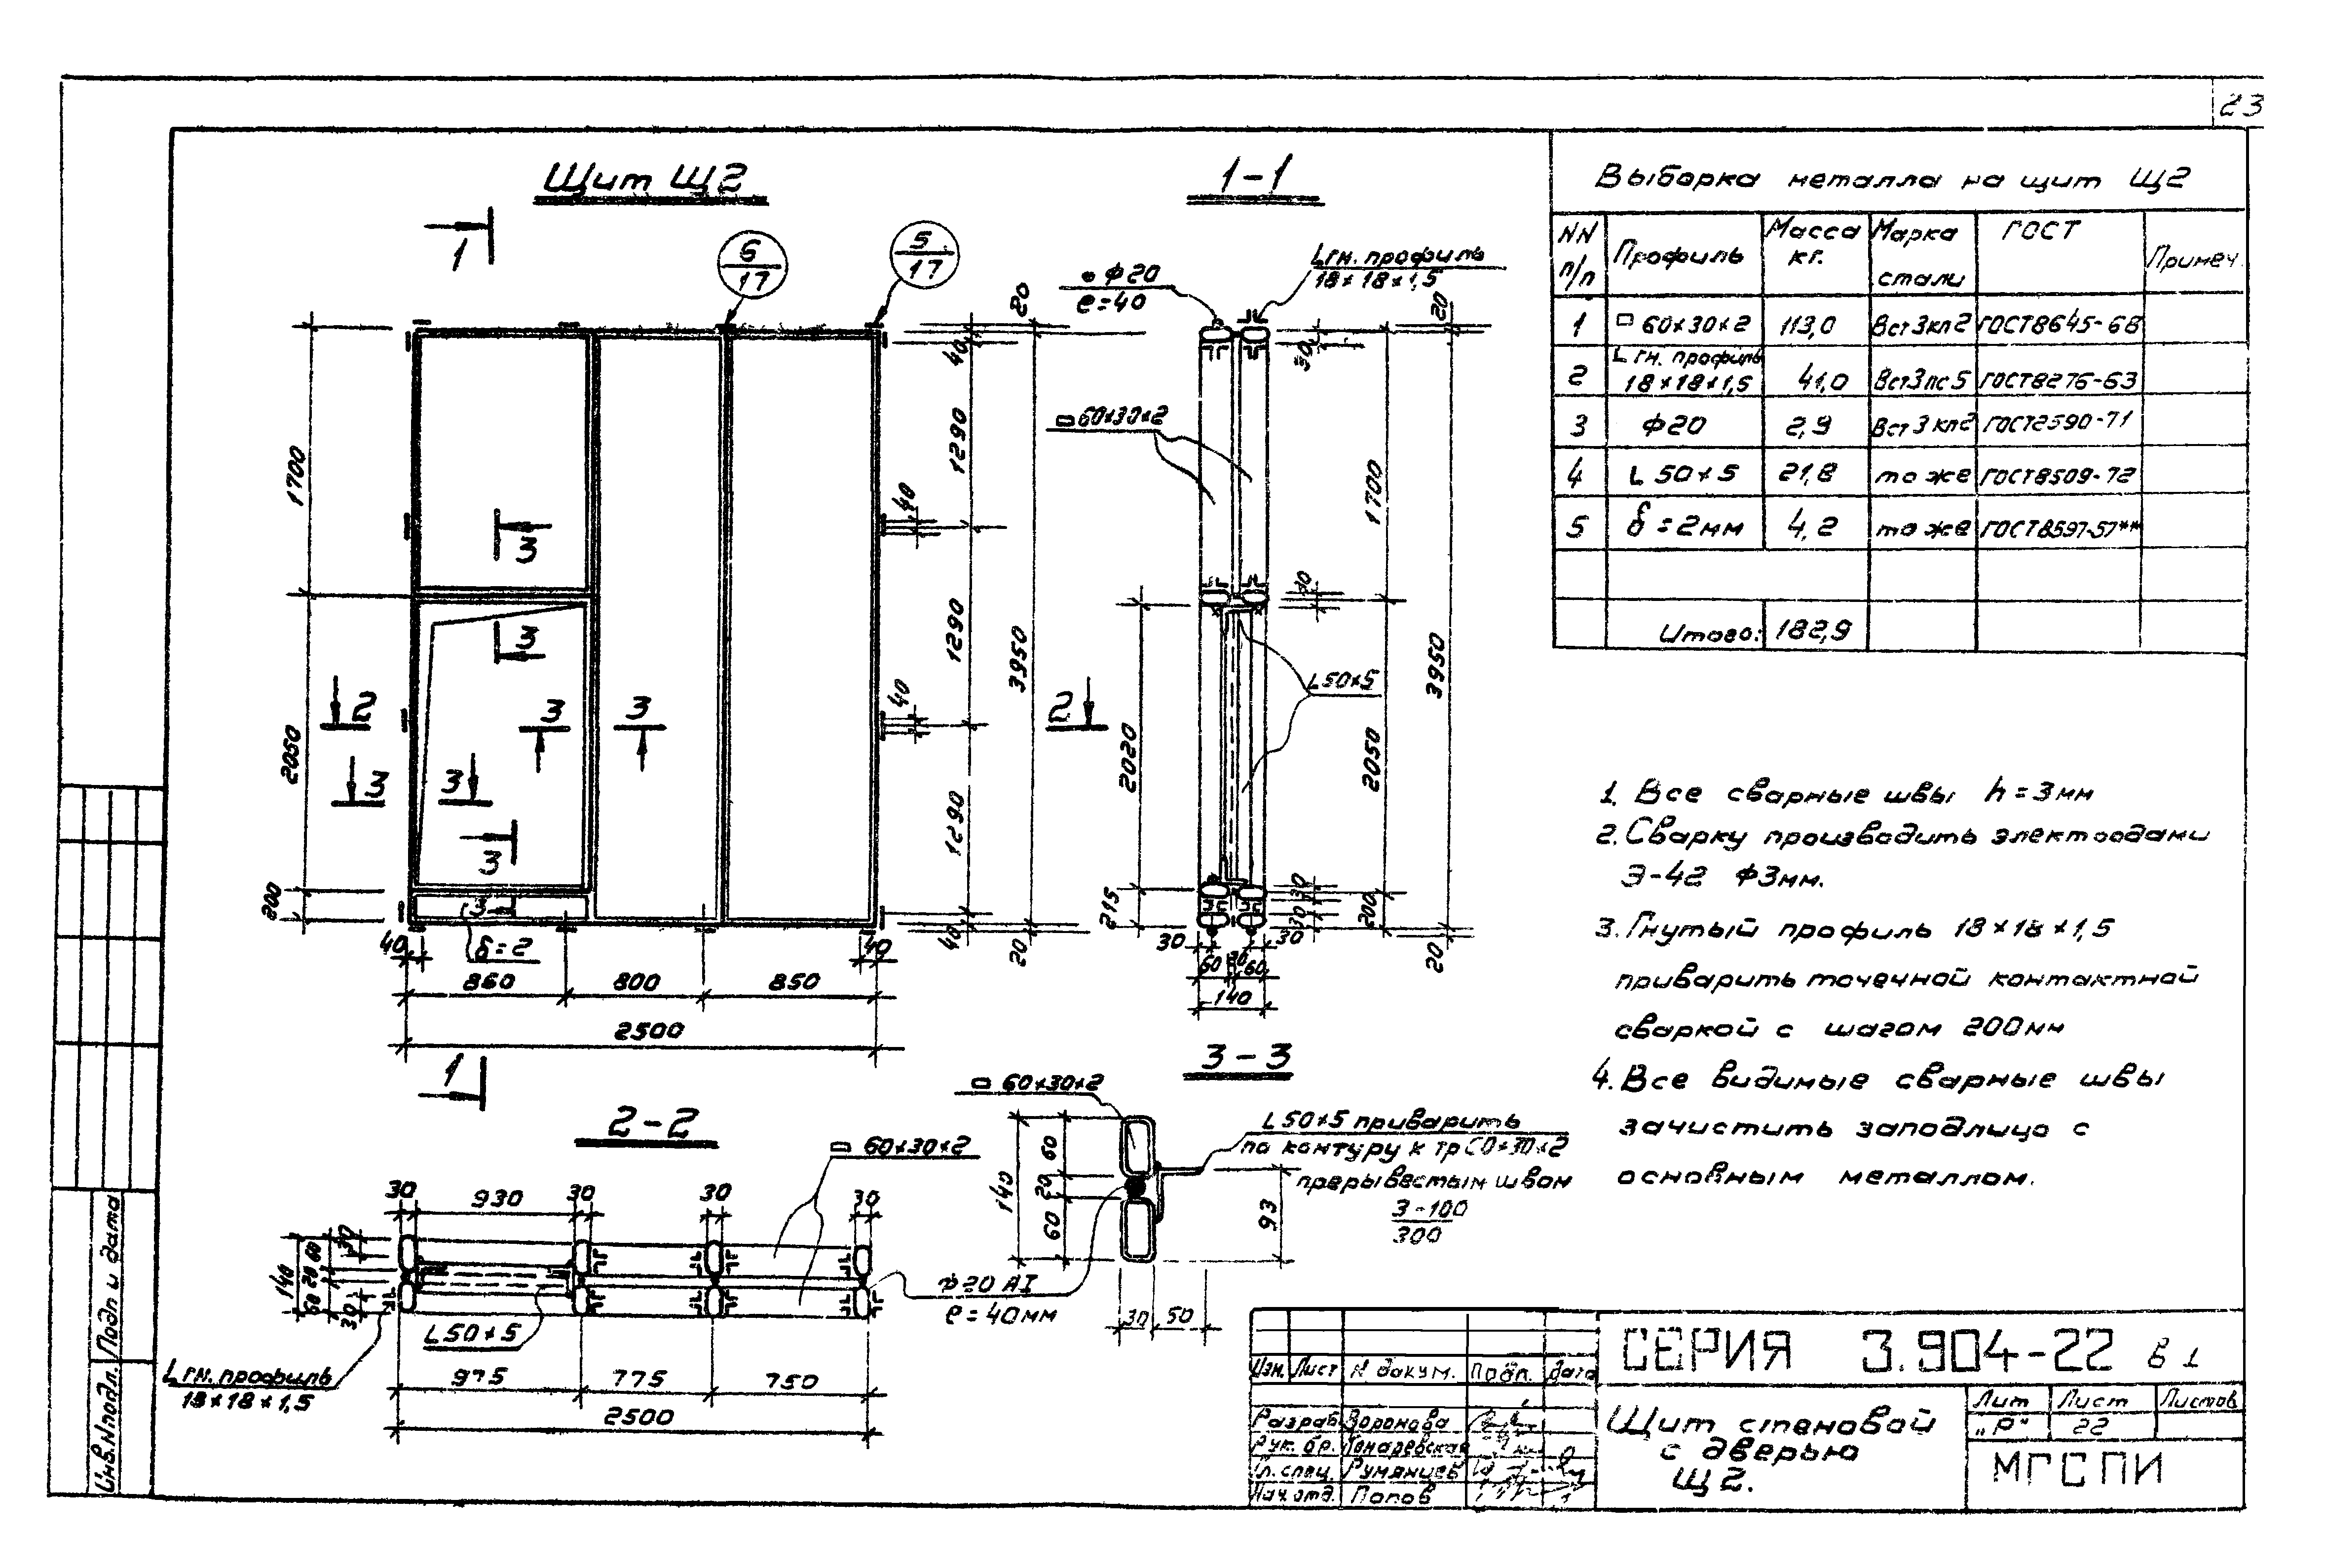 23
Щит Щ2
1
6
17
5
17
20
40
1290
40
1290
40
1290
40
20
3950
1700
2050
200
3
3
3
3
3
3
3
3
2
δ=2
40
40
860
800
850
2500
1
1-1
ф20
ℓ=40
L гн. профиль
18×18×1,5
20
30
□ 60×30×2
1700
30
L50×5
2
2020
2050
3950
215
200
30
30
30
30
60
20
60
140
20
2-2
□ 60×30×2
30
930
30
30
30
140
60
20
60
30
30
L50×5
L гн. профиль
18×18×1,5
975
775
750
2500
ф20 АI
ℓ=40мм
3-3
□ 60×30×2
140
60
20
60
L50×5 приварить
по контуру к тр 60×30×2
прерывестым швом
3-100
300
93
30
50
Выборка металла на щит Щ2
NN п/п Профиль Масса кг. Марка стали ГОСТ Примеч.
1 □ 60×30×2 113,0 Вст3кп2 ГОСТ8645-68
2 L гн. профиль 18×18×1,5 41,0 Вст3пс5 ГОСТ8276-63
3 ф20 2,9 Вст3кп2 ГОСТ2590-71
4 L 50×5 21,8 то же ГОСТ8509-72
5 δ=2мм 4,2 то же ГОСТ8597-57**
Итого: 182,9
1. Все сварные швы h=3мм
2. Сварку производить электродами
Э-42 ф3мм.
3. Гнутый профиль 18×18×1,5
приварить точечной контактной
сваркой с шагом 200мм
4. Все видимые сварные швы
зачистить заподлицо с
основным металлом.
Изм. Лист N докум. Подп. Дата
Разраб. Воронова
Рук. бр.
Гл. спец. Румянцев
Нач. отд. Попов
СЕРИЯ 3.904-22 в 1
Щит стеновой
с дверью
Щ2.
Лит Лист Листов
"Р" 22
МГСПИ
Инв.N подл.
Подп и дата